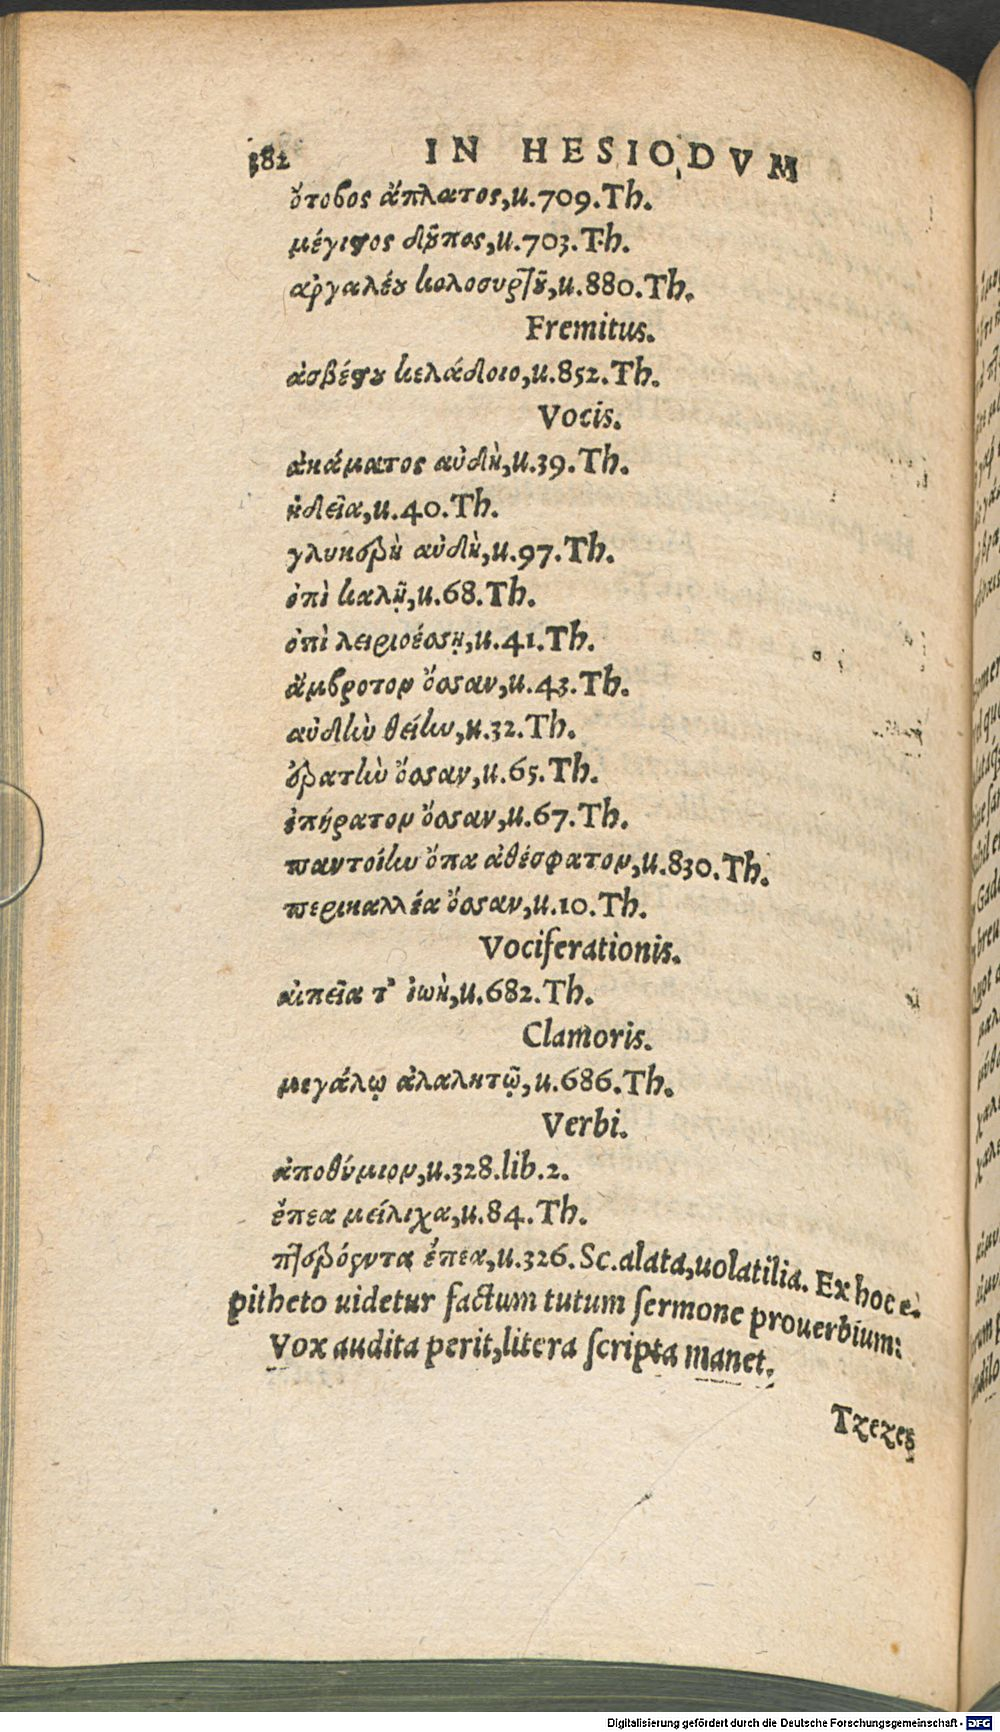 382 IN HESIODVM
ὄτοβος ἄπλατος, u. 709. Th.
μέγιστος δοῦπος, u. 703. Th.
ἀργαλέου κολοσυρτοῦ, u. 880. Th.
Fremitus.
ἀσβέστου κελάδοιο, u. 852. Th.
Vocis.
ἀκάματος αὐδὴ, u. 39. Th.
ἡδεῖα, u. 40. Th.
γλυκερὴ αὐδὴ, u. 97. Th.
ὀπὶ καλῇ, u. 68. Th.
ὀπὶ λειριοέσσῃ, u. 41. Th.
ἄμβροτον ὄσσαν, u. 43. Th.
αὐδὴν θείην, u. 32. Th.
ἐρατὴν ὄσσαν, u. 65. Th.
ἐπήρατον ὄσσαν, u. 67. Th.
παντοίην ὄπα ἀθέσφατον, u. 830. Th.
περικαλλέα ὄσσαν, u. 10. Th.
Vociferationis.
αἰπεῖα τ' ἰωὴ, u. 682. Th.
Clamoris.
μεγάλῳ ἀλαλητῷ, u. 686. Th.
Verbi.
ἀποθύμιον, u. 328. lib. 2.
ἔπεα μείλιχα, u. 84. Th.
πτερόεντα ἔπεα, u. 326. Sc. alata, uolatilia. Ex hoc e-
pitheto uidetur factum tutum sermone prouerbium:
Vox audita perit, litera scripta manet.
Tzezes
Digitalisierung gefördert durch die Deutsche Forschungsgemeinschaft - DFG